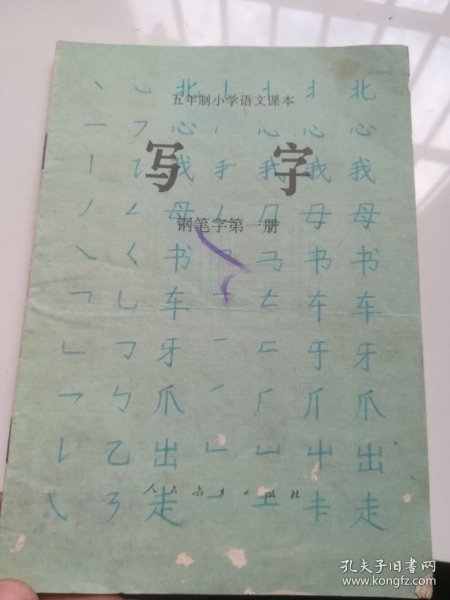 五年制小学语文课本
写字
钢笔字第一册
北
心
我
母
书
车
牙
爪
出
走
北
心
我
母
书
车
牙
爪
出
走
人民教育出版社
孔夫子旧书网
www.kongfz.com